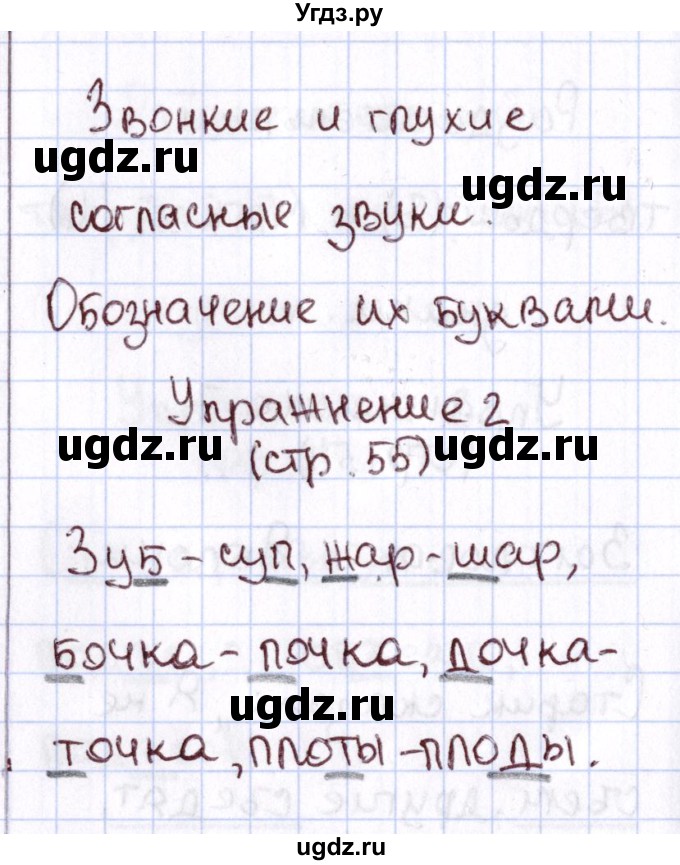 Угдз.ру
Звонкие и глухие
ugdz.ru
ugdz.ru
согласные звуки.
Обозначение их буквами.
Упражнение 2
ugdz.ru
(стр. 55)
ugdz.ru
Зуб - суп, жар - шар,
бочка - почка, дочка -
ugdz.ru
точка, плоты - плоды.
ugdz.ru